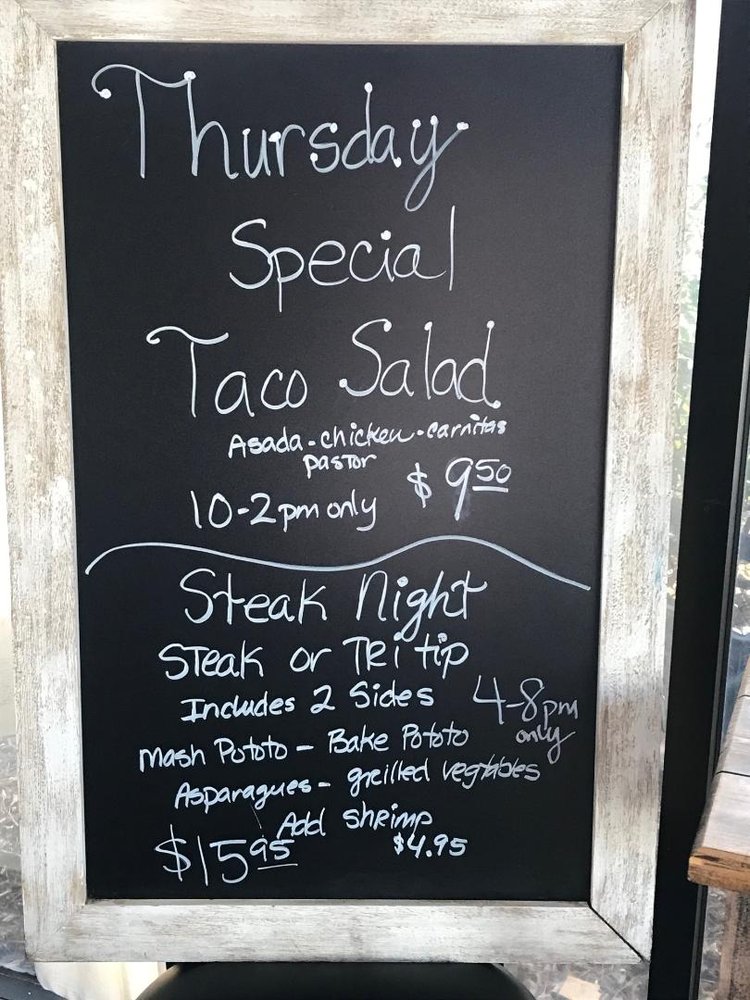 Thursday
Special
Taco Salad
Asada - chicken - carnitas
pastor
$ 9.50
10-2pm only
Steak Night
Steak or TRi tip
Includes 2 Sides
4-8pm
only
Mash Pototo - Bake Pototo
Asparagues - greilled vegtables
Add shrimp
$15.95
$4.95